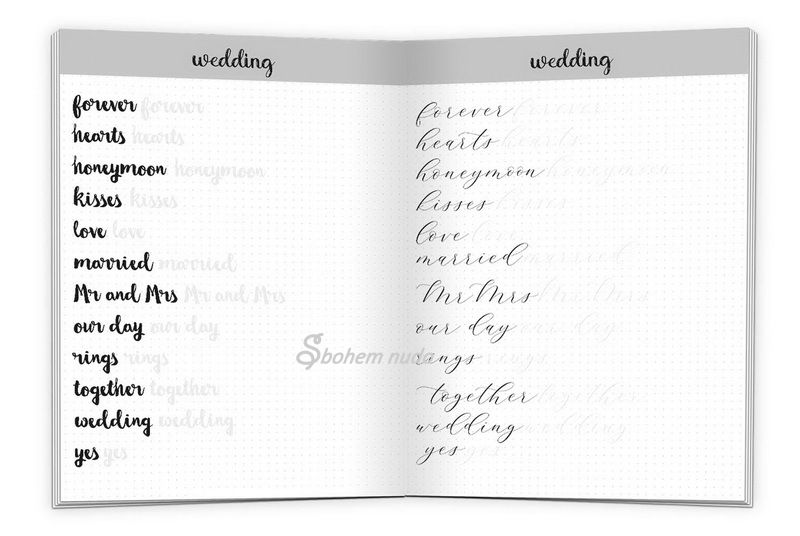 wedding
forever forever
hearts hearts
honeymoon honeymoon
kisses kisses
love love
married married
Mr and Mrs Mr and Mrs
our day our day
rings rings
together together
wedding wedding
yes yes
wedding
forever forever
hearts hearts
honeymoon honeymoon
kisses
love love
married married
Mr Mrs Mr Mrs
our day our day
rings rings
together together
wedding wedding
yes yes
bohem nuda